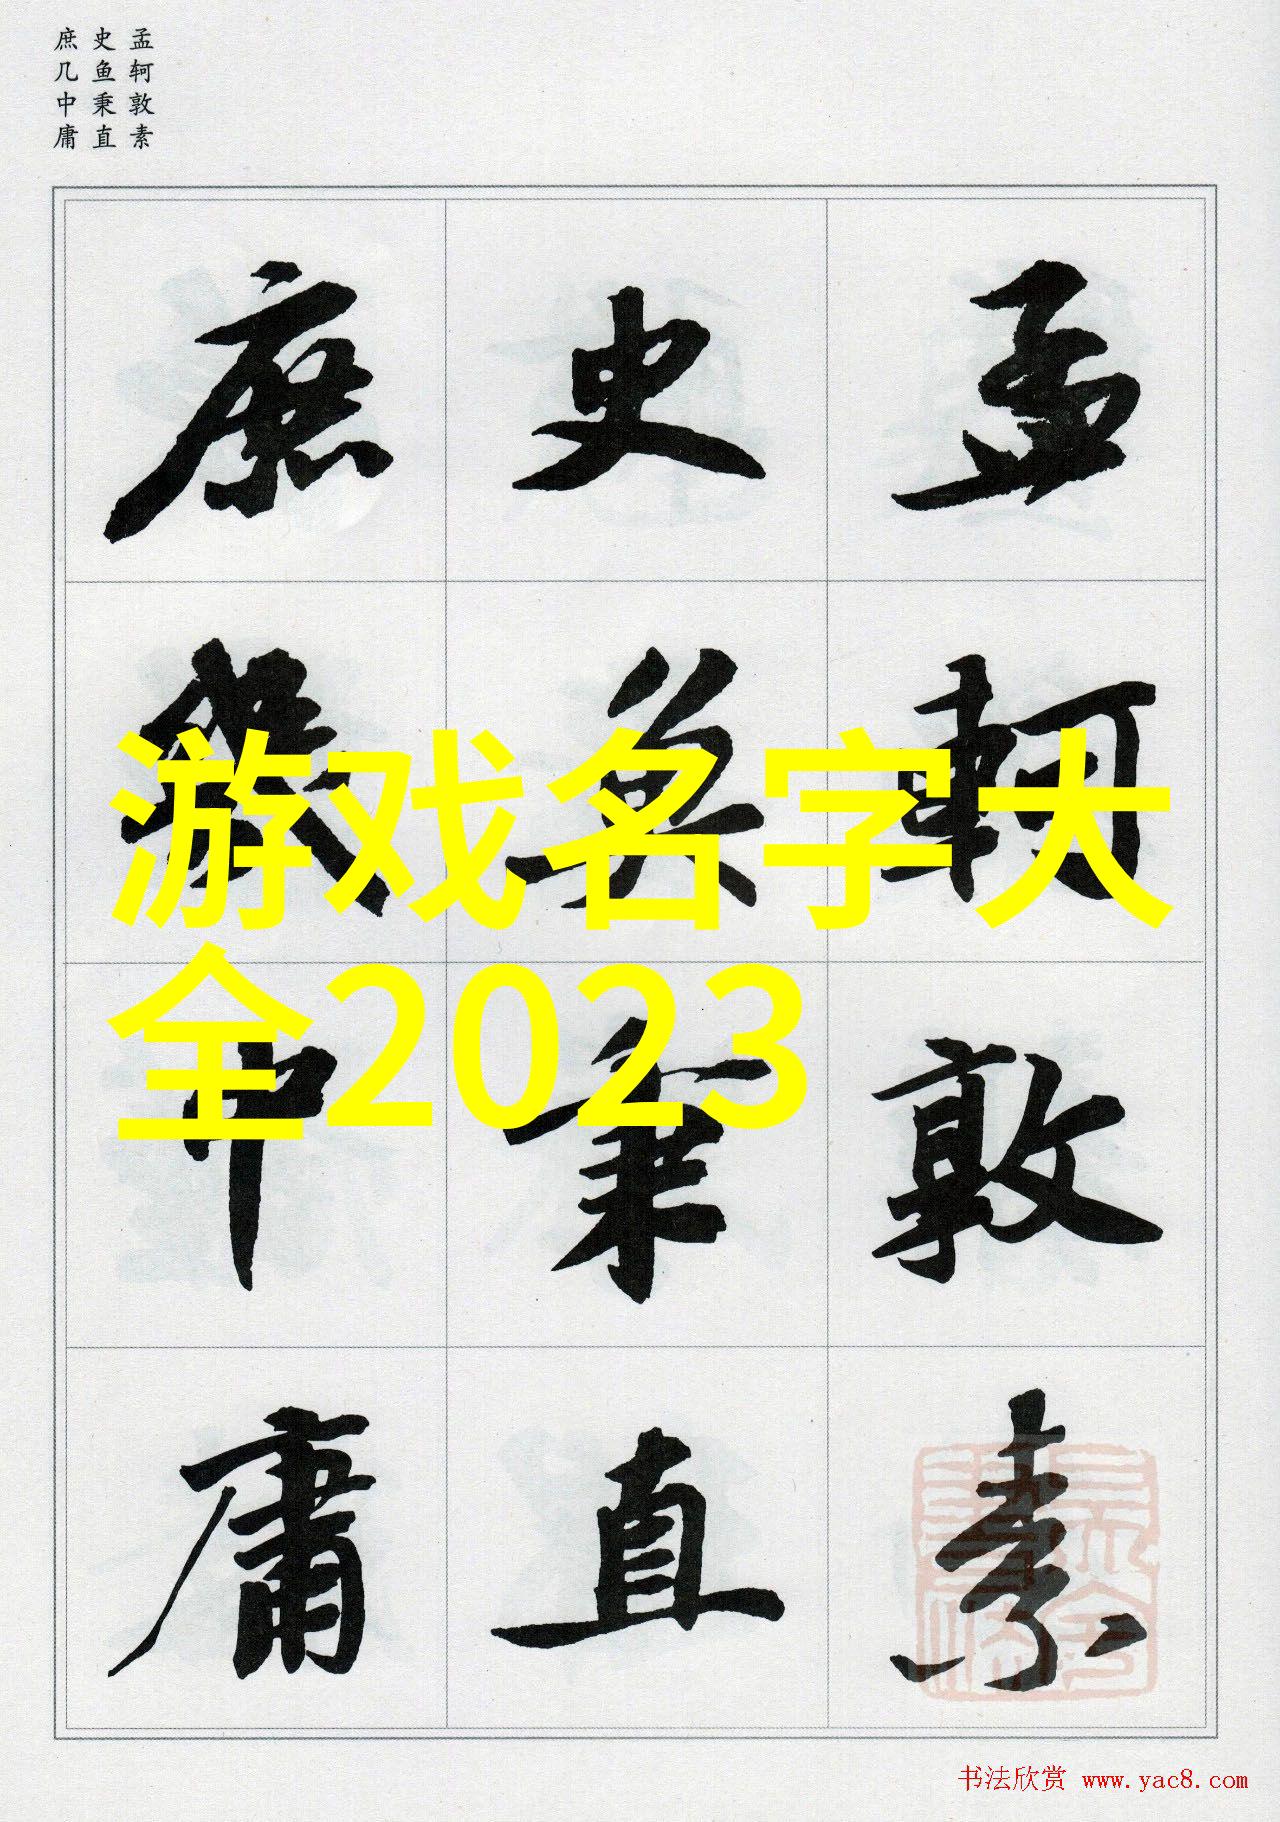 孟轲敦素
史鱼秉直
庶几中庸
孟軻敦素
史魚秉直
庶幾中庸
游戏名字大
全2023
书法欣赏 www.yac8.com